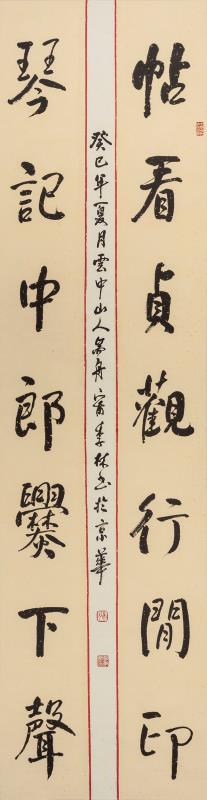 帖看貞觀行間印
琴記中郎爨下聲
癸巳年夏月雲中山人
李林書於京華